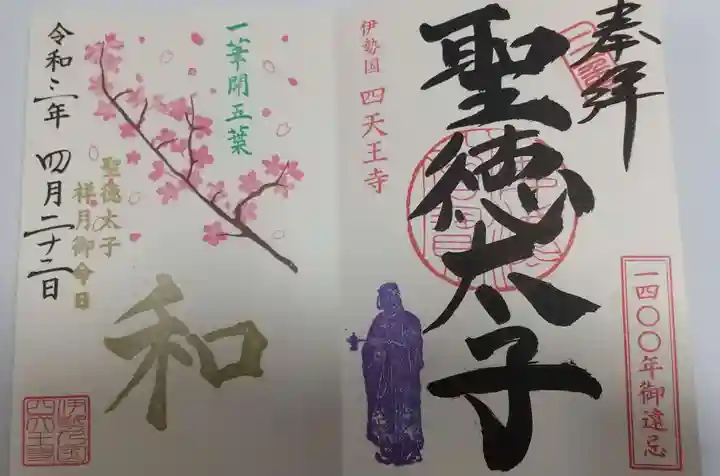 奉拝
聖徳太子
一四〇〇年御遠忌
伊勢国 四天王寺
一華開五葉
聖徳太子
祥月御命日
和
令和三年 四月二十二日